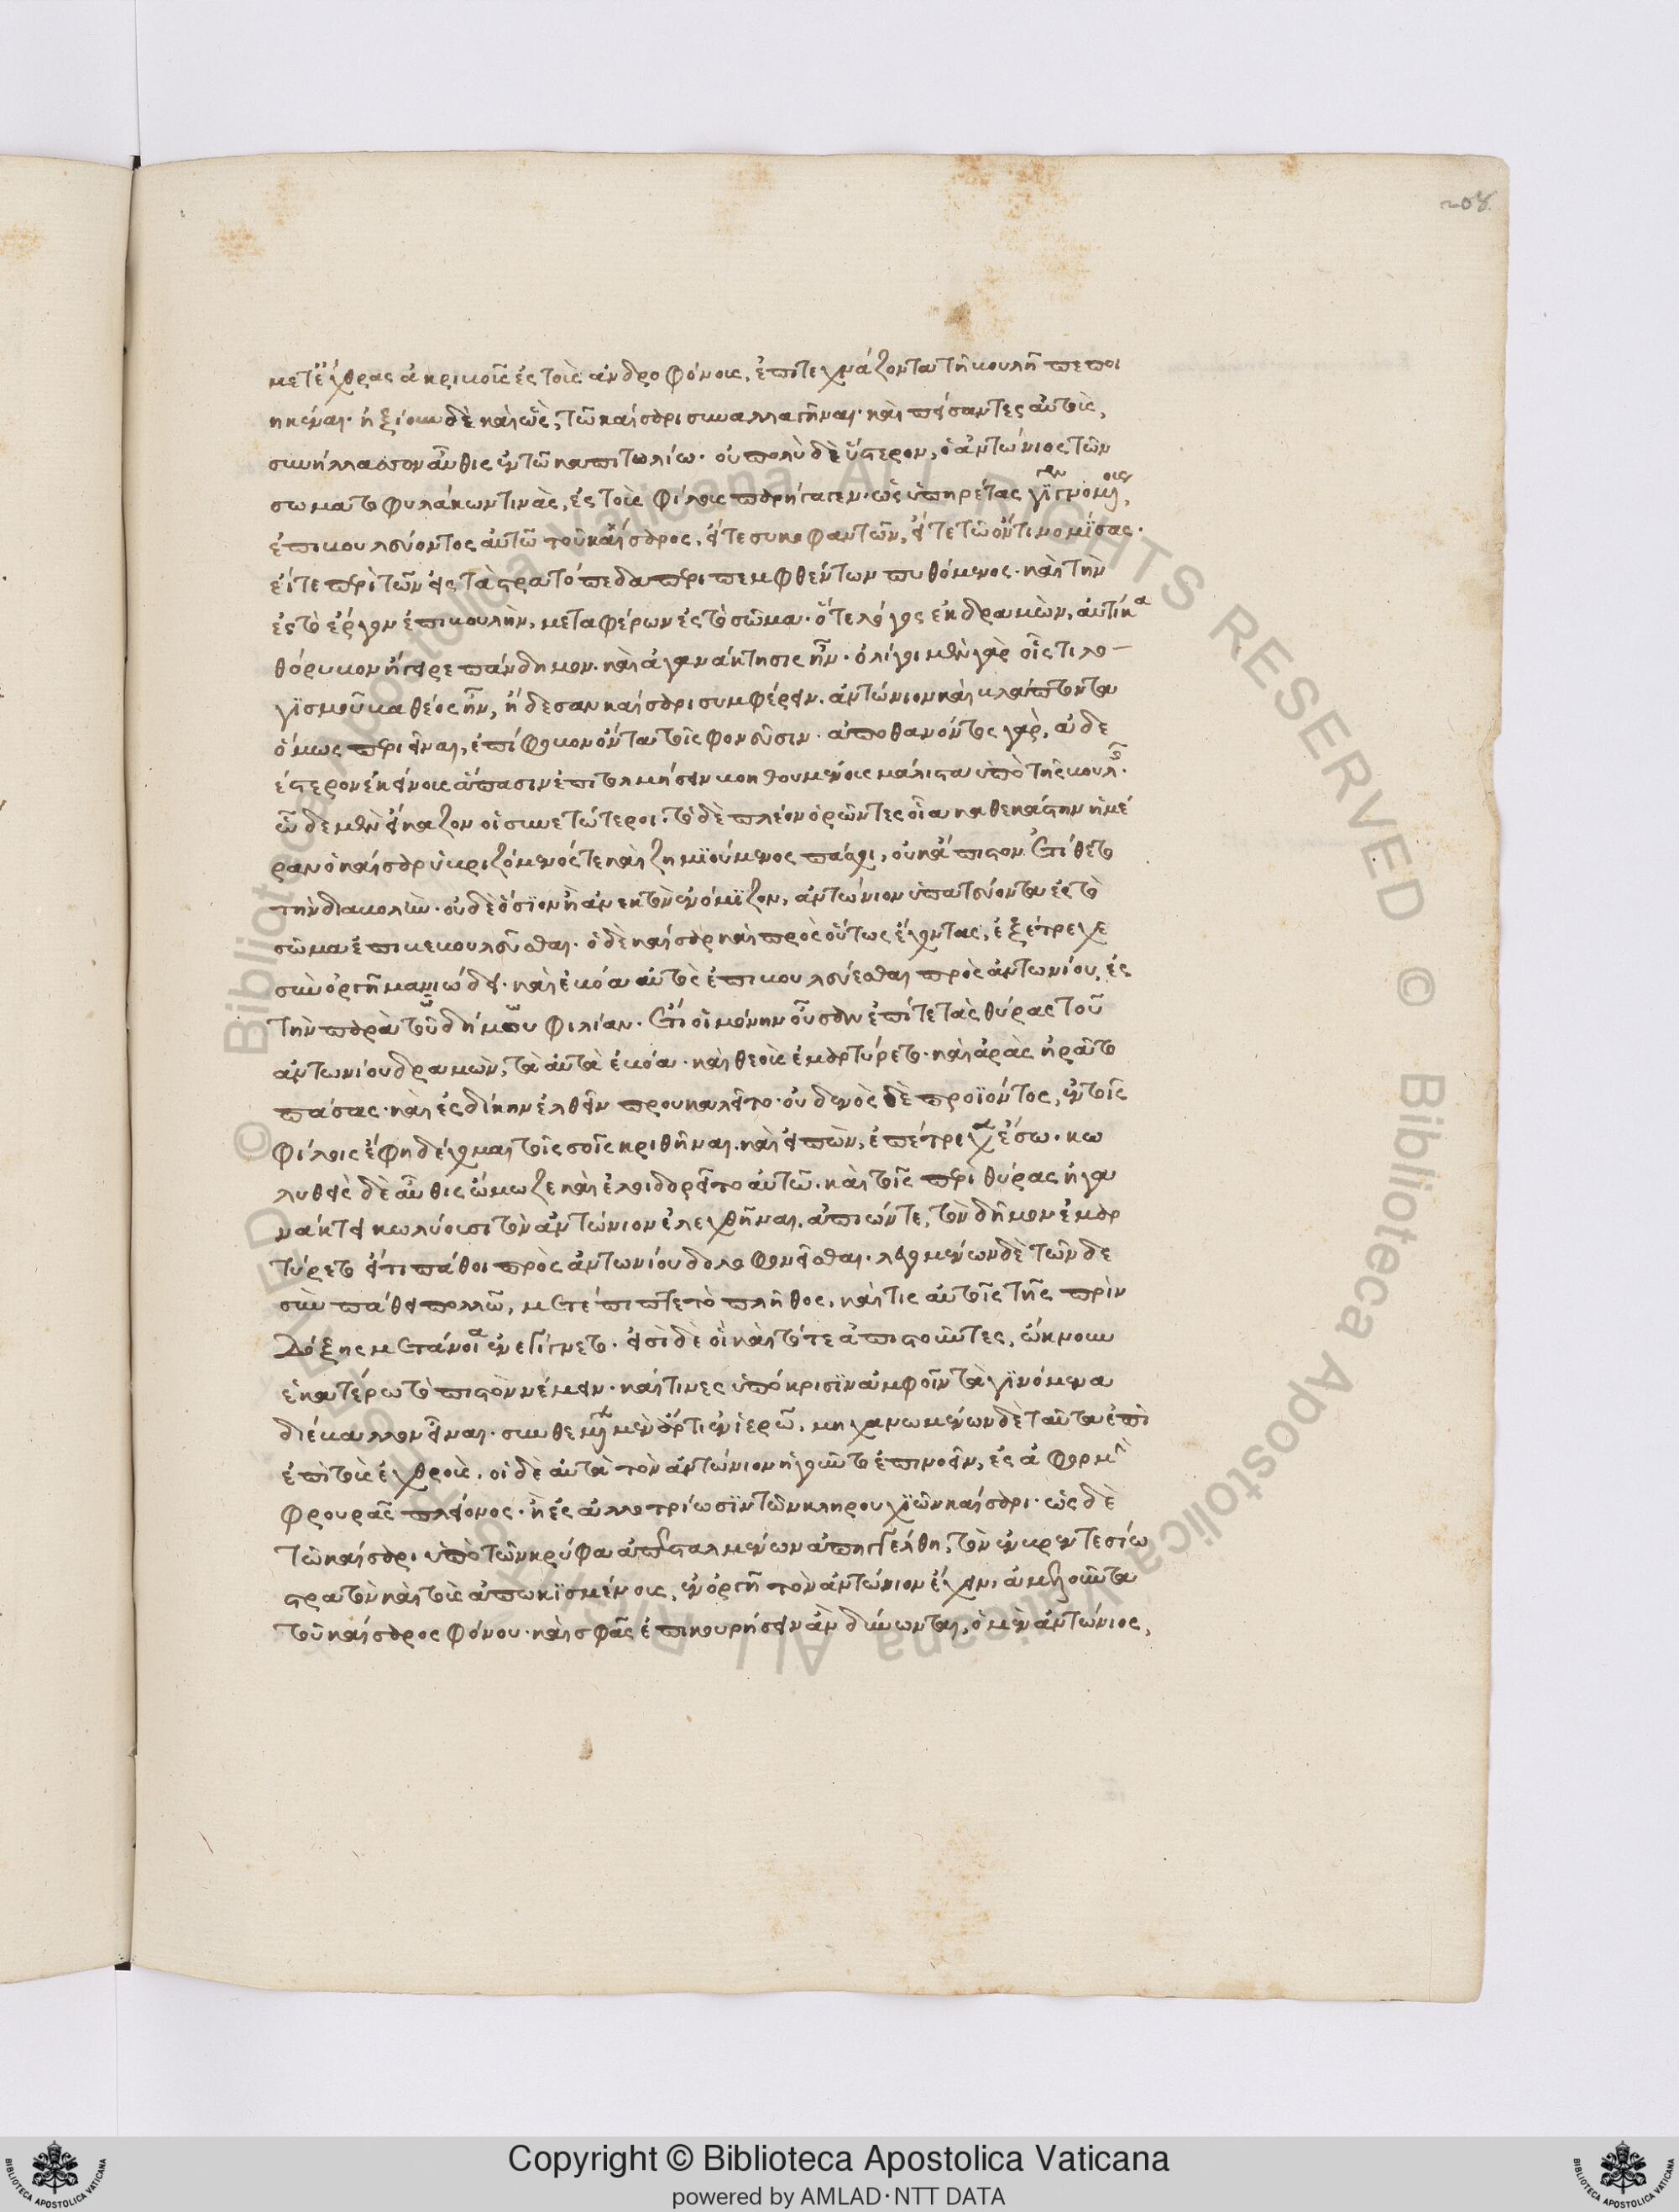 208
μετ' ἔχθρας ἀκριβοῦς ἐς τοὺς ἀνδροφόνους, ἐπιτεχνάζοντα τῆ βουλῆ πεποι
ηκέναι· ἠξίουν δὲ καὶ ὣς, τῶ καίσαρι συναλλαγῆναι· καὶ πείσαντες αὐτοὺς,
συνήλλασσον αὖθις ἐν τῶ καπιτωλίω· οὐ πολὺ δὲ ὕστερον, ὁ ἀντώνιος τῶν
σωματοφυλάκων τινὰς, ἐς τοὺς φίλους παρήγαγεν· ὡς ὑπηρέτας γιγνομένους
ἐπιβουλεύοντος αὐτῶ τοῦ καίσαρος, εἴτε συκοφαντῶν, εἴτε τῶ ὄντι νομίσας·
εἴτε περὶ τῶν εἰς τὰ στρατόπεδα περιπεμφθέντων πυθόμενος· καὶ τὴν
ἐς τὸ ἔργον ἐπιβουλὴν, μεταφέρων ἐς τὸ σῶμα· ὅ τε λόγος ἐκδραμὼν, αὐτίκα
θόρυβον ἤγειρε πάνδημον· καὶ ἀγανάκτησις ἦν· ὀλίγοι μὲν γὰρ οἷς τι λο
γισμοῦ βαθέος ἦν, ἤδεσαν καίσαρι συμφέρειν. ἀντώνιον καὶ βλάπτοντα
ὅμως περιεῖναι, ἐπίφοβον ὄντα τοῖς φονεῦσιν· ἀποθανόντος γὰρ, ἀδε
έστερον ἐκείνους ἅπασιν ἐπιτολμήσειν βοηθουμένους μάλιστα ὑπὸ τῆς βουλῆς·
ὧδε μὲν εἴκαζον οἱ συνετώτεροι. τὸ δὲ πλέον ὁρῶντες οἷα καθ' ἑκάστην ἡμέ
ραν ὁ καίσαρ ὑβριζόμενός τε καὶ ζημιούμενος πάσχοι, οὐκ ἄπιστον ἐτίθεντο
τὴν διαβολὴν· οὐδὲ ὅσιον ἢ ἀνεκτὸν ἐνόμιζον, ἀντώνιον ὑπατεύοντα ἐς τὸ
σῶμα ἐπιβεβουλεῦσθαι· ὁ δὲ καίσαρ καὶ πρὸς οὕτως ἔχοντας, ἐξέτρεχε
σὺν ὀργῆ μανιώδει· καὶ ἐβόα αὐτὸς ἐπιβουλεύεσθαι πρὸς ἀντωνίου, ἐς
τὴν παρὰ τοῦ δήμου φιλίαν· ἔτι οἱ μόνην οὖσαν ἐπί τε τὰς θύρας τοῦ
ἀντωνίου δραμὼν, τὰ αὐτὰ ἐβόα· καὶ θεοὺς ἐμαρτύρετο· καὶ ἀρὰς ἠρᾶτο
πάσας· καὶ ἐς δίκην ἐλθεῖν προυκαλεῖτο· οὐδενὸς δὲ προϊόντος, ἐν τοῖς
φίλοις ἔφη δέχομαι τοῖς σοῖς κριθῆναι. καὶ εἰπὼν, ἐπέτρεχεν ἔσω· κω
λυθεὶς δὲ αὖθις ὤμωζε καὶ ἐλοιδορεῖτο αὐτῶ. καὶ τοῖς περὶ θύρας ἠγα
νάκτει κωλύουσι τὸν ἀντώνιον ἐλεγχθῆναι. ἀπιών τε, τὸν δῆμον ἐμαρ
τύρετο εἴ τι πάθοι πρὸς ἀντωνίου δολοφονεῖσθαι· λεγομένων δὲ τῶνδε
σὺν πάθει πολλῶ, μετέπιπτε τὸ πλῆθος, καί τις αὐτοῖς τῆς πρὶν
δόξης μετάνοια ἐνεγίγνετο· εἰσὶ δὲ οἳ καὶ τότε ἀπιστοῦντες, ὤκνουν
ἑκατέρω τὸ πιστὸν νέμειν· καί τινες ὑπόκρισιν ἀμφοῖν τὰ γινόμενα
διέβαλλον εἶναι· συνθεμένων μὲν ἄρτι ἐν ἱερῶ, μηχανωμένων δὲ ταῦτα ἐπὶ
ἐπὶ τοὺς ἐχθροὺς, οἱ δὲ αὐτὰ τὸν ἀντώνιον ἡγοῦντο ἐπινοεῖν, ἐς ἀφορμὴν
φρουρᾶς πλείονος· ἢ ἐς ἀλλοτρίωσιν τῶν κληρουχιῶν καίσαρι· ὡς δὲ
τῶ καίσαρι ὑπὸ τῶν κρύφα ἀπεσταλμένων ἀπηγγέλθη, τὸν ἐν βρεντεσίω
στρατὸν καὶ τοὺς ἀπωκισμένους, ἐν ὀργῆ τὸν ἀντώνιον ἔχειν, ἀμελοῦντα
τοῦ καίσαρος φόνου· καὶ σφᾶς ἐπικουρήσειν ἂν δύνωνται, ὁ μὲν ἀντώνιος,
Copyright © Biblioteca Apostolica Vaticana
powered by AMLAD·NTT DATA